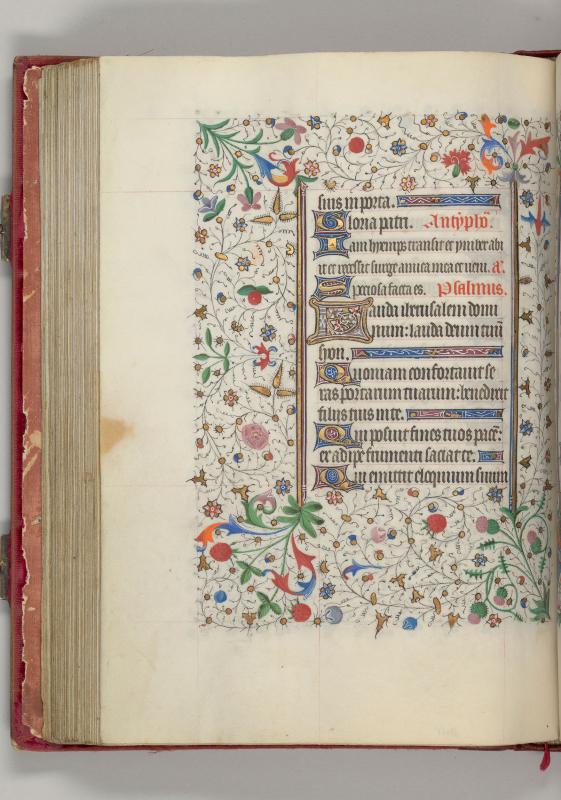 suis in porta.
Gloria patri. Antypho.
Iam hyemps transiit et ymber abi
it et recessit surge amica mea et veni. a.
Speciosa facta es. Psalmus.
Lauda iherusalem domi
num: lauda deum tuum
syon.
Quoniam confortavit se
ras portarum tuarum: benedixit
filiis tuis in te.
Qui posuit fines tuos pacem:
et adipe frumenti saciat te.
Qui emittit eloquium suum